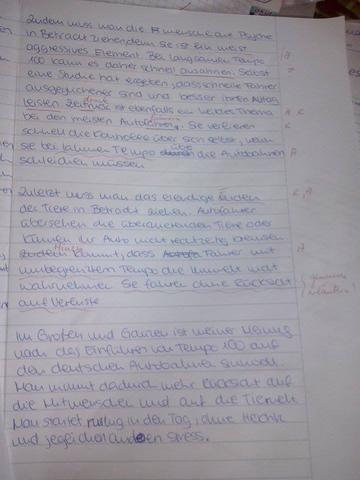 Zudem muss man die menschliche Psyche
in Betracht ziehen, denn sie ist ein meist
aggressives Element. Bei langsamen Tempo
100 kann es daher schnell ausahnen. Selbst
eine Studie hat ergeben, dass schnelle Fahrer
ausgeglichener sind und besser ihren Alltag
leisten. ist ebenfalls ein heikles Thema
bei den meisten Autofahrern. Sie verlieren
schnell die Kontrolle über sich selbst, wenn
sie bei lahmen Tempo über die Autobahnen
schleichen müssen
Zuletzt muss man das elendige Leiden
der Tiere in Betracht ziehen. Autofahrer
übersehen die überquerenden Tiere oder
können ihr Auto nicht rechtzeitig bremsen
Hinzu kommt, dass Fahrer mit
unbegrenztem Tempo die Umwelt nicht
wahrnehmen. Sie fahren ohne Rücksicht
auf Verluste.
Im Großen und Ganzen ist meiner Meinung
nach das Einführen von Tempo 100 auf
den deutschen Autobahnen sinnvoll.
Man nimmt dadurch mehr Rücksicht auf
die Mitmenschen und auf die Tierwelt.
Man startet ruhig in den Tag, ohne Hektik
und jeglichen anderen Stress.